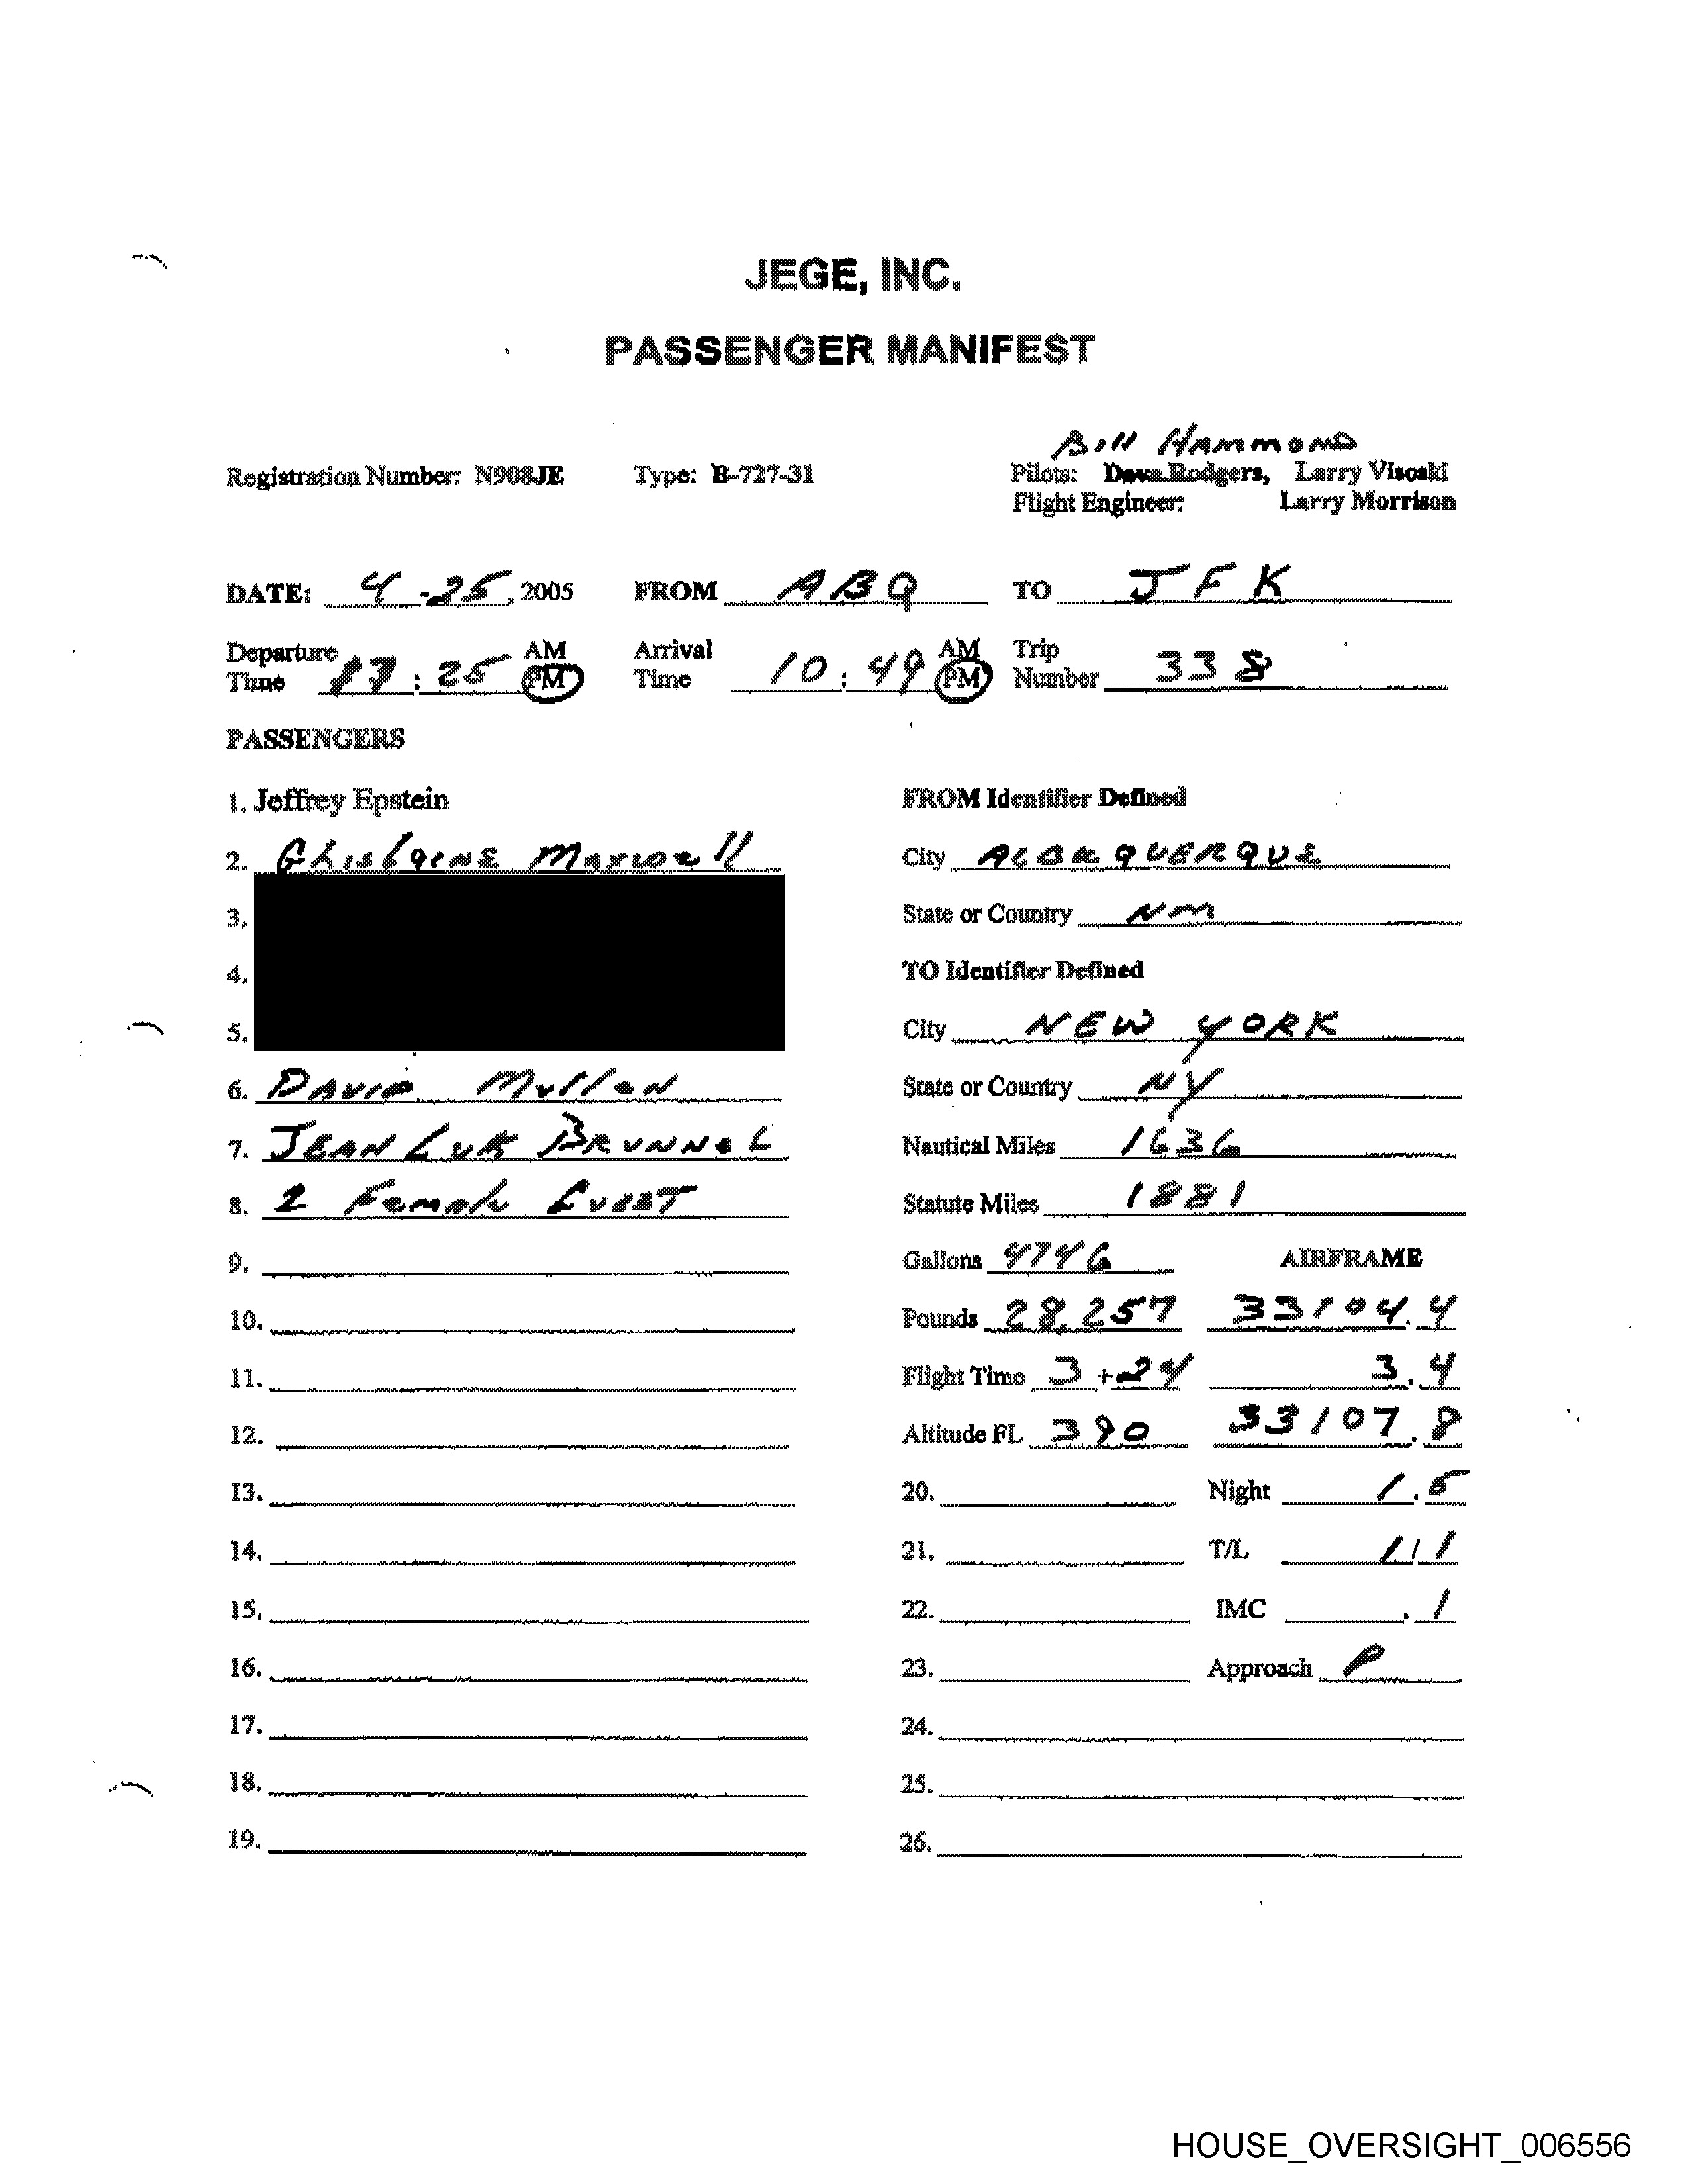 JEGE, INC.
PASSENGER MANIFEST
Bill Hammond
Registration Number: N908JE Type: B-727-31 Pilots: Dave Rodgers, Larry Visoski
Flight Engineer: Larry Morrison
DATE: 4-25, 2005 FROM ABQ TO JFK
Departure Time :25 AM PM Arrival Time 10:49 AM PM Trip Number 338
PASSENGERS
1. Jeffrey Epstein FROM Identifier Defined
2. Maxwell City
3. State or Country NM
4. TO Identifier Defined
5. City NEW YORK
6. DAVID Mullen State or Country NY
7. JEAN LUK BRUNNEL Nautical Miles 1636
8. 2 Female Guest Statute Miles 1881
9. Gallons 4746 AIRFRAME
10. Pounds 28,257 33104.4
11. Flight Time 3+24 3.4
12. Altitude FL 390 33107.8
13. 20. Night 1.5
14. 21. T/L 1/1
15. 22. IMC .1
16. 23. Approach P
17. 24.
18. 25.
19. 26.
HOUSE_OVERSIGHT_006556